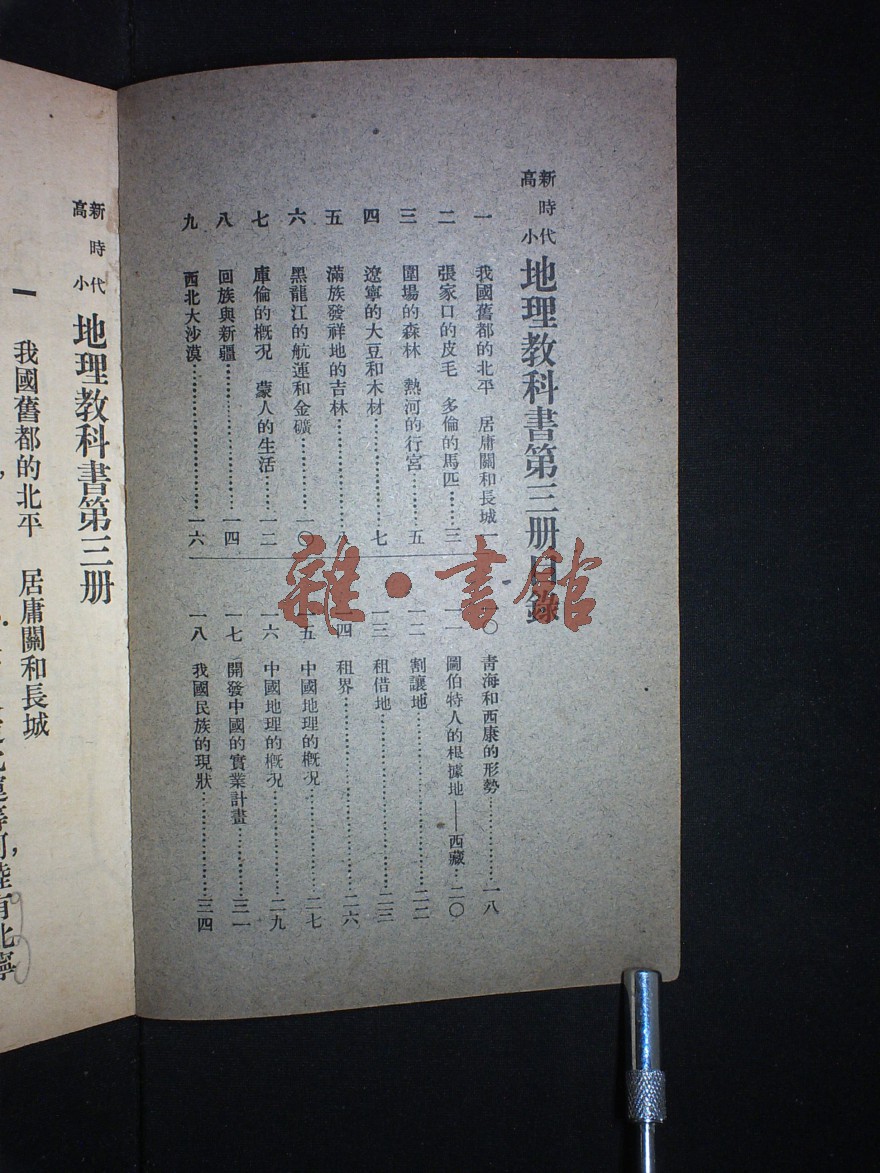 新時代高小
地理教科書第三册目錄
一　我國舊都的北平　居庸關和長城 一
二　張家口的皮毛　多倫的馬匹……三
三　圍場的森林　熱河的行宮…………五
四　遼寧的大豆和木材……………………七
五　滿族發祥地的吉林……………………八
六　黑龍江的航運和金礦…………一〇
七　庫倫的概況　蒙人的生活……一二
八　回族與新疆……………………一四
九　西北大沙漠……………………一六
一〇　青海和西康的形勢……………一八
一一　圖伯特人的根據地——西藏…二〇
一二　割讓地…………………………二二
一三　租借地…………………………二三
一四　租界……………………………二六
一五　中國地理的概況………………二七
一六　中國地理的概況………………二九
一七　開發中國的實業計畫…………三一
一八　我國民族的現狀………………三四
雜·書館
新時代高小
地理教科書第三册
一　我國舊都的北平　居庸關和長城